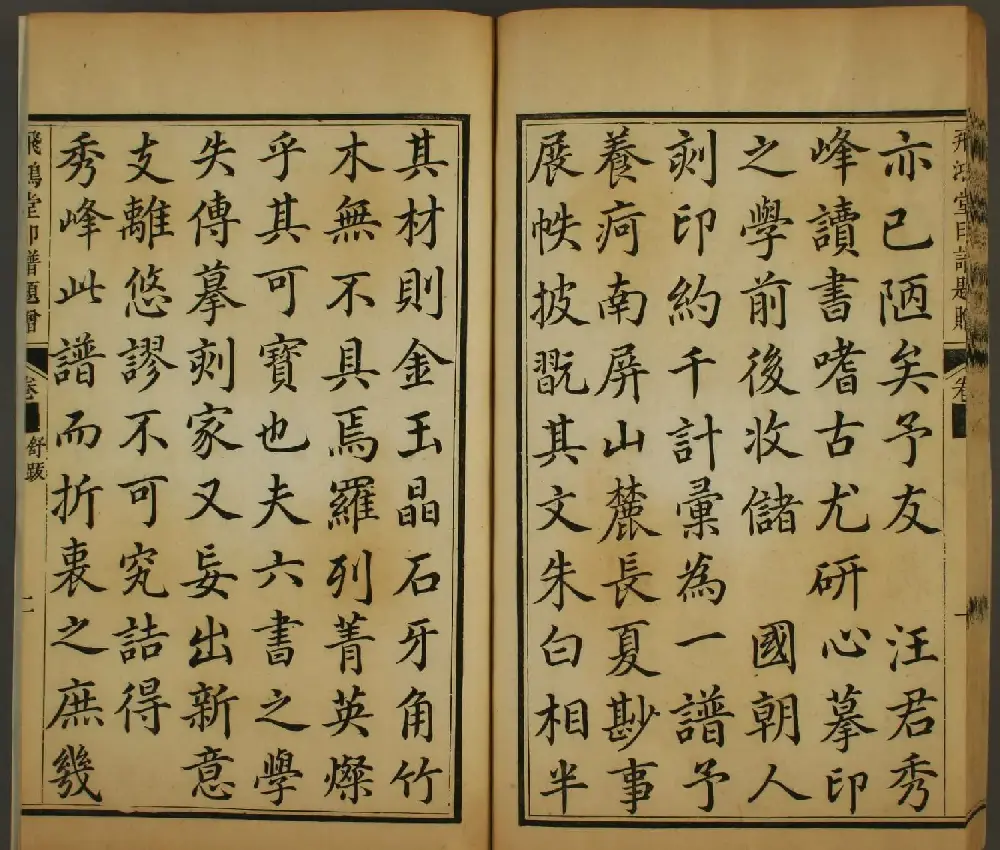 飛鴻堂印譜題贈
卷
亦已陋矣予友 汪君秀
峰讀書嗜古尤研心摹印
之學前後收儲 國朝人
刻印約千計彙為一譜予
養疴南屏山麓長夏尠事
展帙披翫其文朱白相半
其材則金玉晶石牙角竹
木無不具焉羅列菁英燦
乎其可寶也夫六書之學
失傳摹刻家又妄出新意
支離悠謬不可究詰得
秀峰此譜而折衷之庶幾
飛鴻堂印譜題贈
卷
舒䟦
二